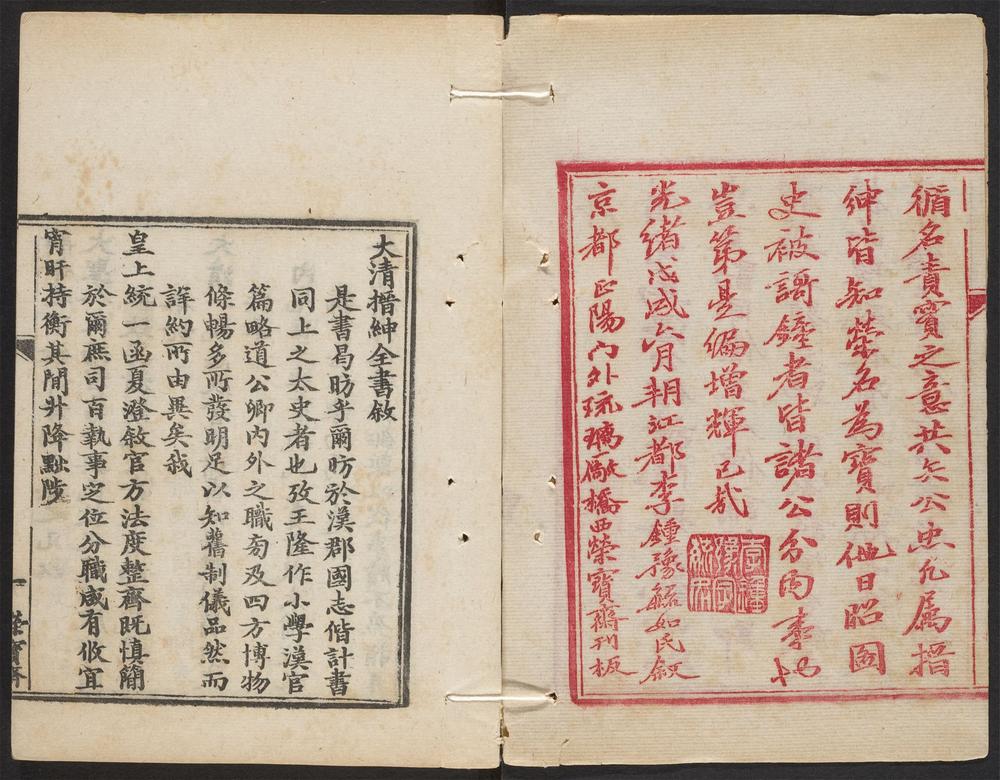 循名責實之意共矢公忠允属搢
紳皆知榮名為寶則他日昭國
史被謌鐘者皆諸公分內事也
豈第是編增輝已哉
光緒戊戌六月朔江都李鍾豫毓如氏敘
京都正陽門外琉璃廠橋西榮寶齋刊板
大清搢紳全書敘
是書曷昉乎爾昉於漢郡國志偕計書
同上之太史者也攷王隆作小學漢官
篇略道公卿內外之職旁及四方博物
條暢多所發明足以知舊制儀品然而
詳約所由異矣我
皇上統一函夏澄敘官方法度整齊既慎簡
於爾庶司百執事定位分職咸有攸宜
宵旰持衡其間升降黜陟
一
榮寶齋